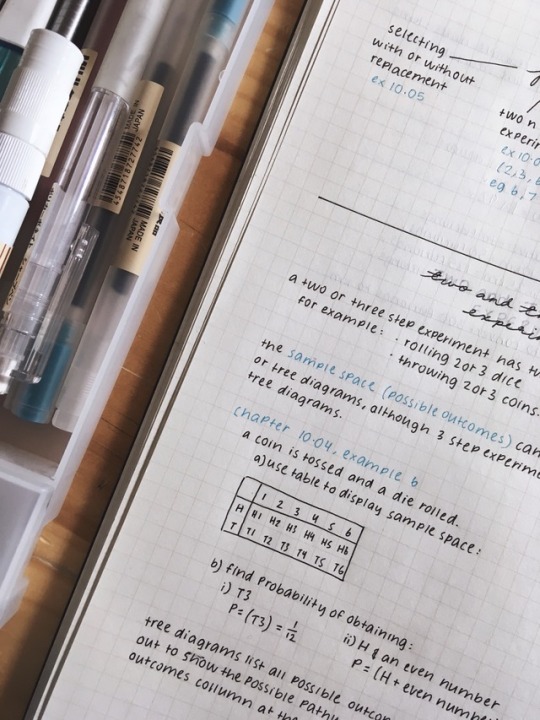 MADE IN JAPAN
4548718727742
MADE IN JAPAN
selecting
with or without
replacement
ex 10.05
two n
experi
ex 10.0
(2,3,
eg 6,7
two and
a two or three step experiment has tw
for example: · rolling 2 or 3 dice
· throwing 2 or 3 coins.
the sample space (possible outcomes) can
or tree diagrams, although 3 step experime
tree diagrams.
chapter 10.04, example 6
a coin is tossed and a die rolled.
a) use table to display sample space:
1 2 3 4 5 6
H H1 H2 H3 H4 H5 H6
T T1 T2 T3 T4 T5 T6
b) find probability of obtaining:
i) T3
P=(T3) = 1/12
ii) H & an even number
P=(H + even number
tree diagrams list all possible outcom
out to show the possible pathw
outcomes collumn at the